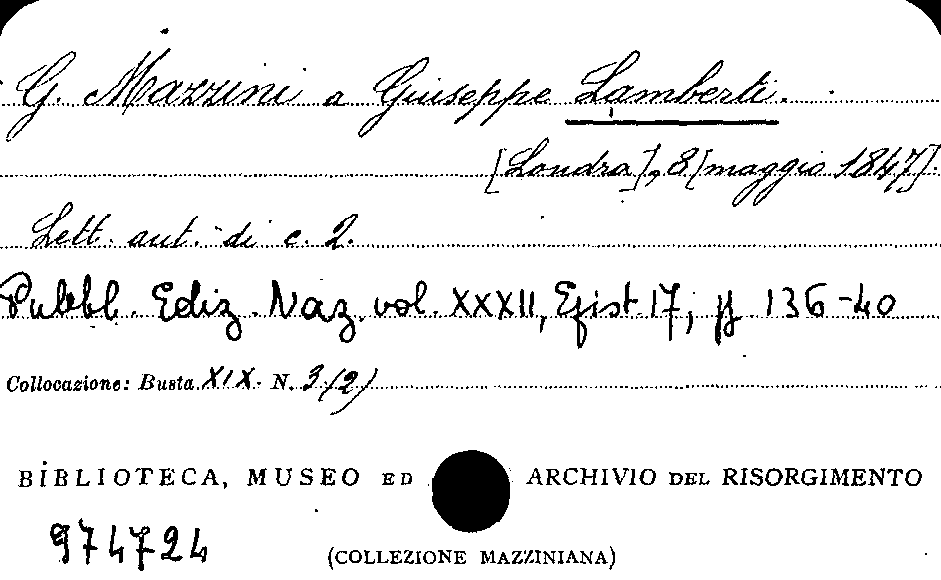 G. Mazzini a Giuseppe Lamberti.
[Londra], 8 [maggio 1847].
Lett. aut. di c. 2.
Pubbl. Ediz. Naz. vol. XXXII, Epist. 17, pp 136-40
Collocazione: Busta XIX. N. 3/(2)
BIBLIOTECA, MUSEO ED ARCHIVIO DEL RISORGIMENTO
974724
(COLLEZIONE MAZZINIANA)